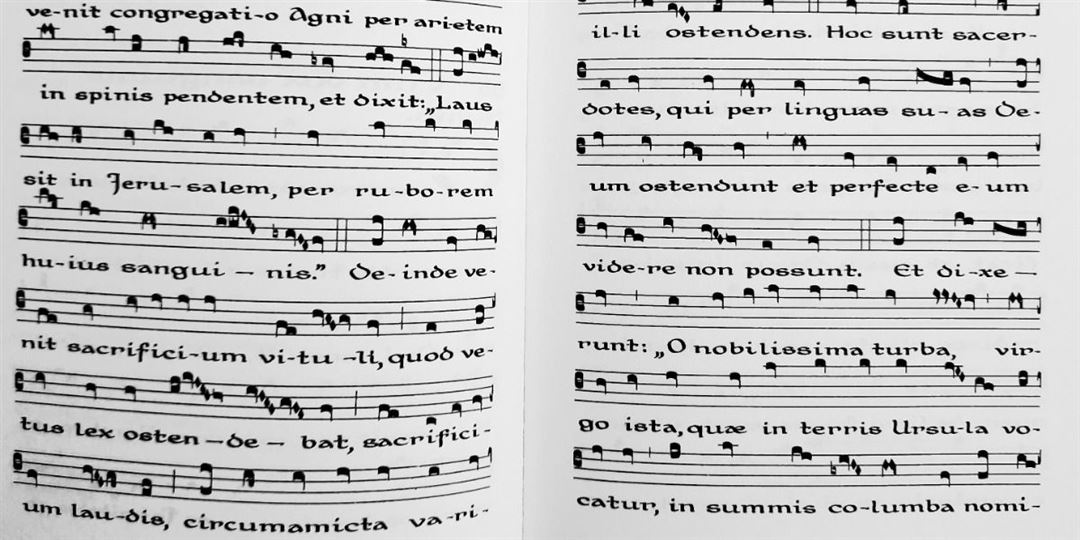 ve-nit congregati-o Agni per arietem
in spinis pendentem, et dixit: „Laus
sit in Jeru-salem, per ru-bo-rem
hu-ius sangui — nis.” De-inde ve-
nit sacrifici-um vi-tu -li, quod ve-
tus lex osten — de — bat, sacrifici-
um lau-dis, circumamicta va-ri-
il-li ostendens. Hoc sunt sacer-
dotes, qui per linguas su- as De-
um ostendunt et perfecte e- um
vide-re non possunt. Et di-xe —
runt: „O nobilissima turba, vir-
go ista, quæ in terris Ursu-la vo-
catur, in summis co-lumba nomi-